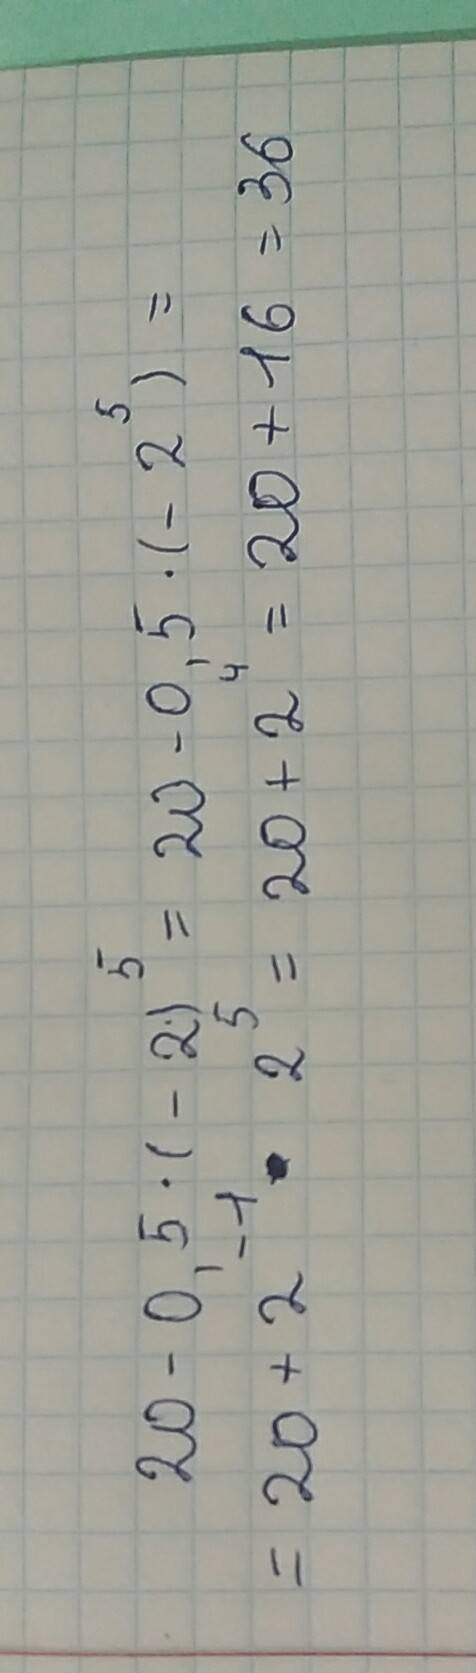 20 - 0,5 · (-2)⁵ = 20 - 0,5 · (-2⁵) =
= 20 + 2⁻¹ · 2⁵ = 20 + 2⁴ = 20 + 16 = 36